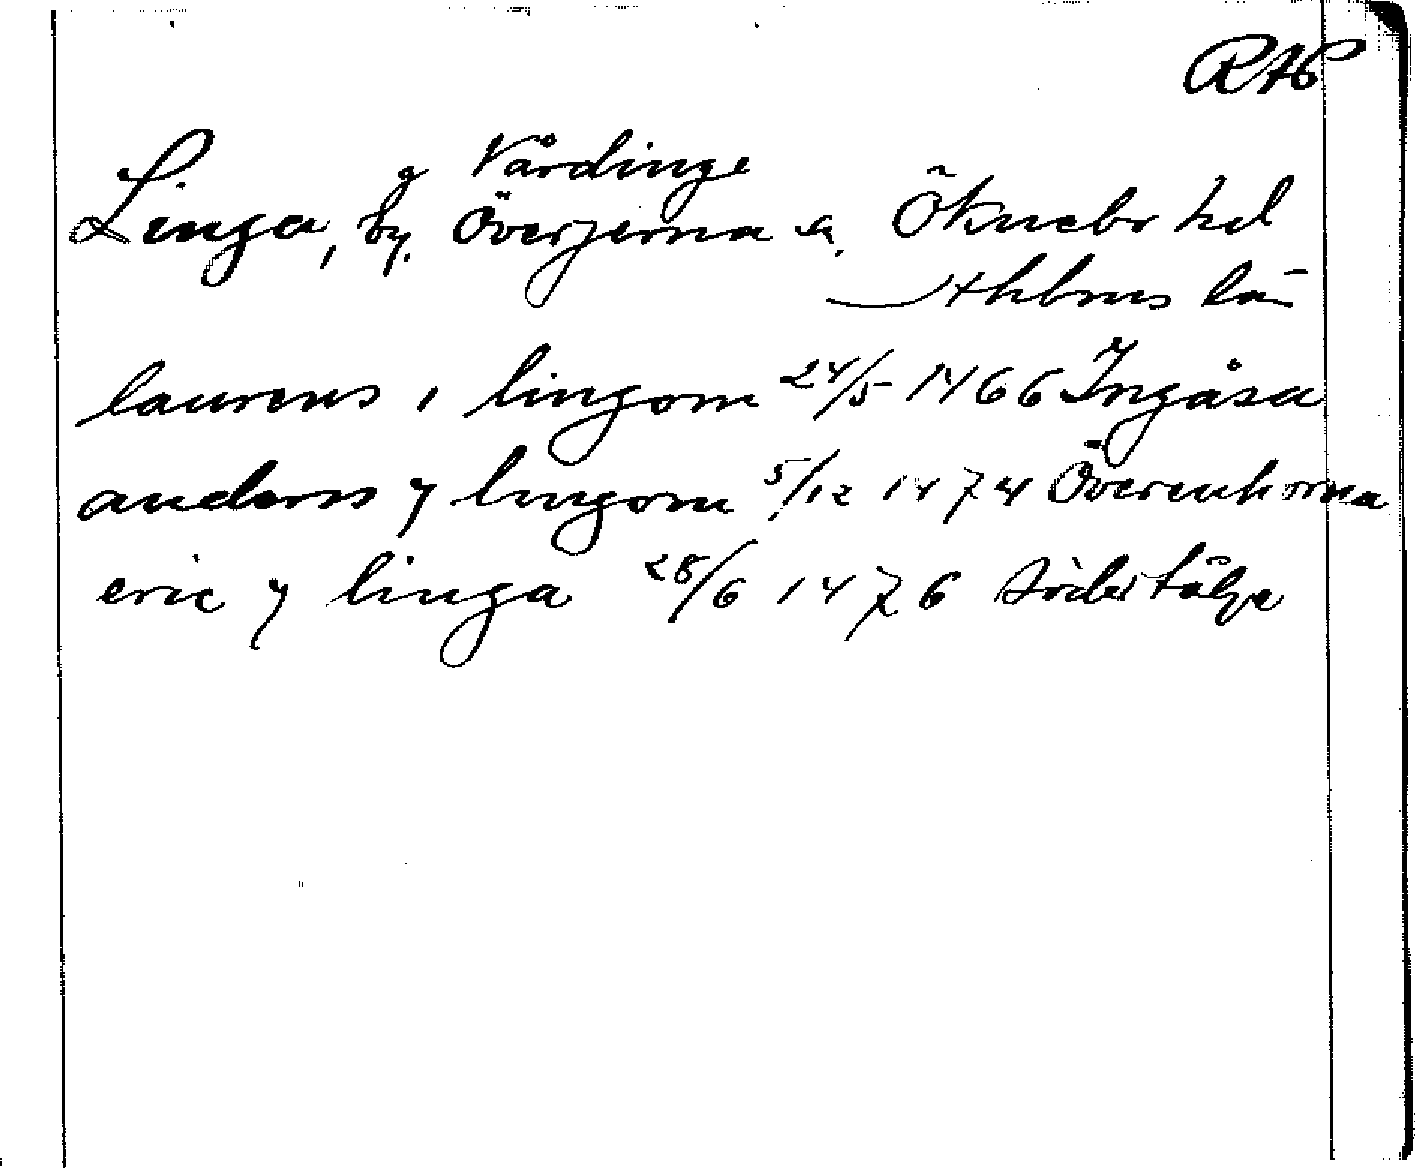 RAP
g Vårdinge
Linga, by. Överjerna s. Öknebo hd
Sthlms län
laurens i lingom 24/5 1466 Ingåsa
anders y lingom 5/12 1474 Överenhörna
eric y linga 28/6 1476 Södertälje